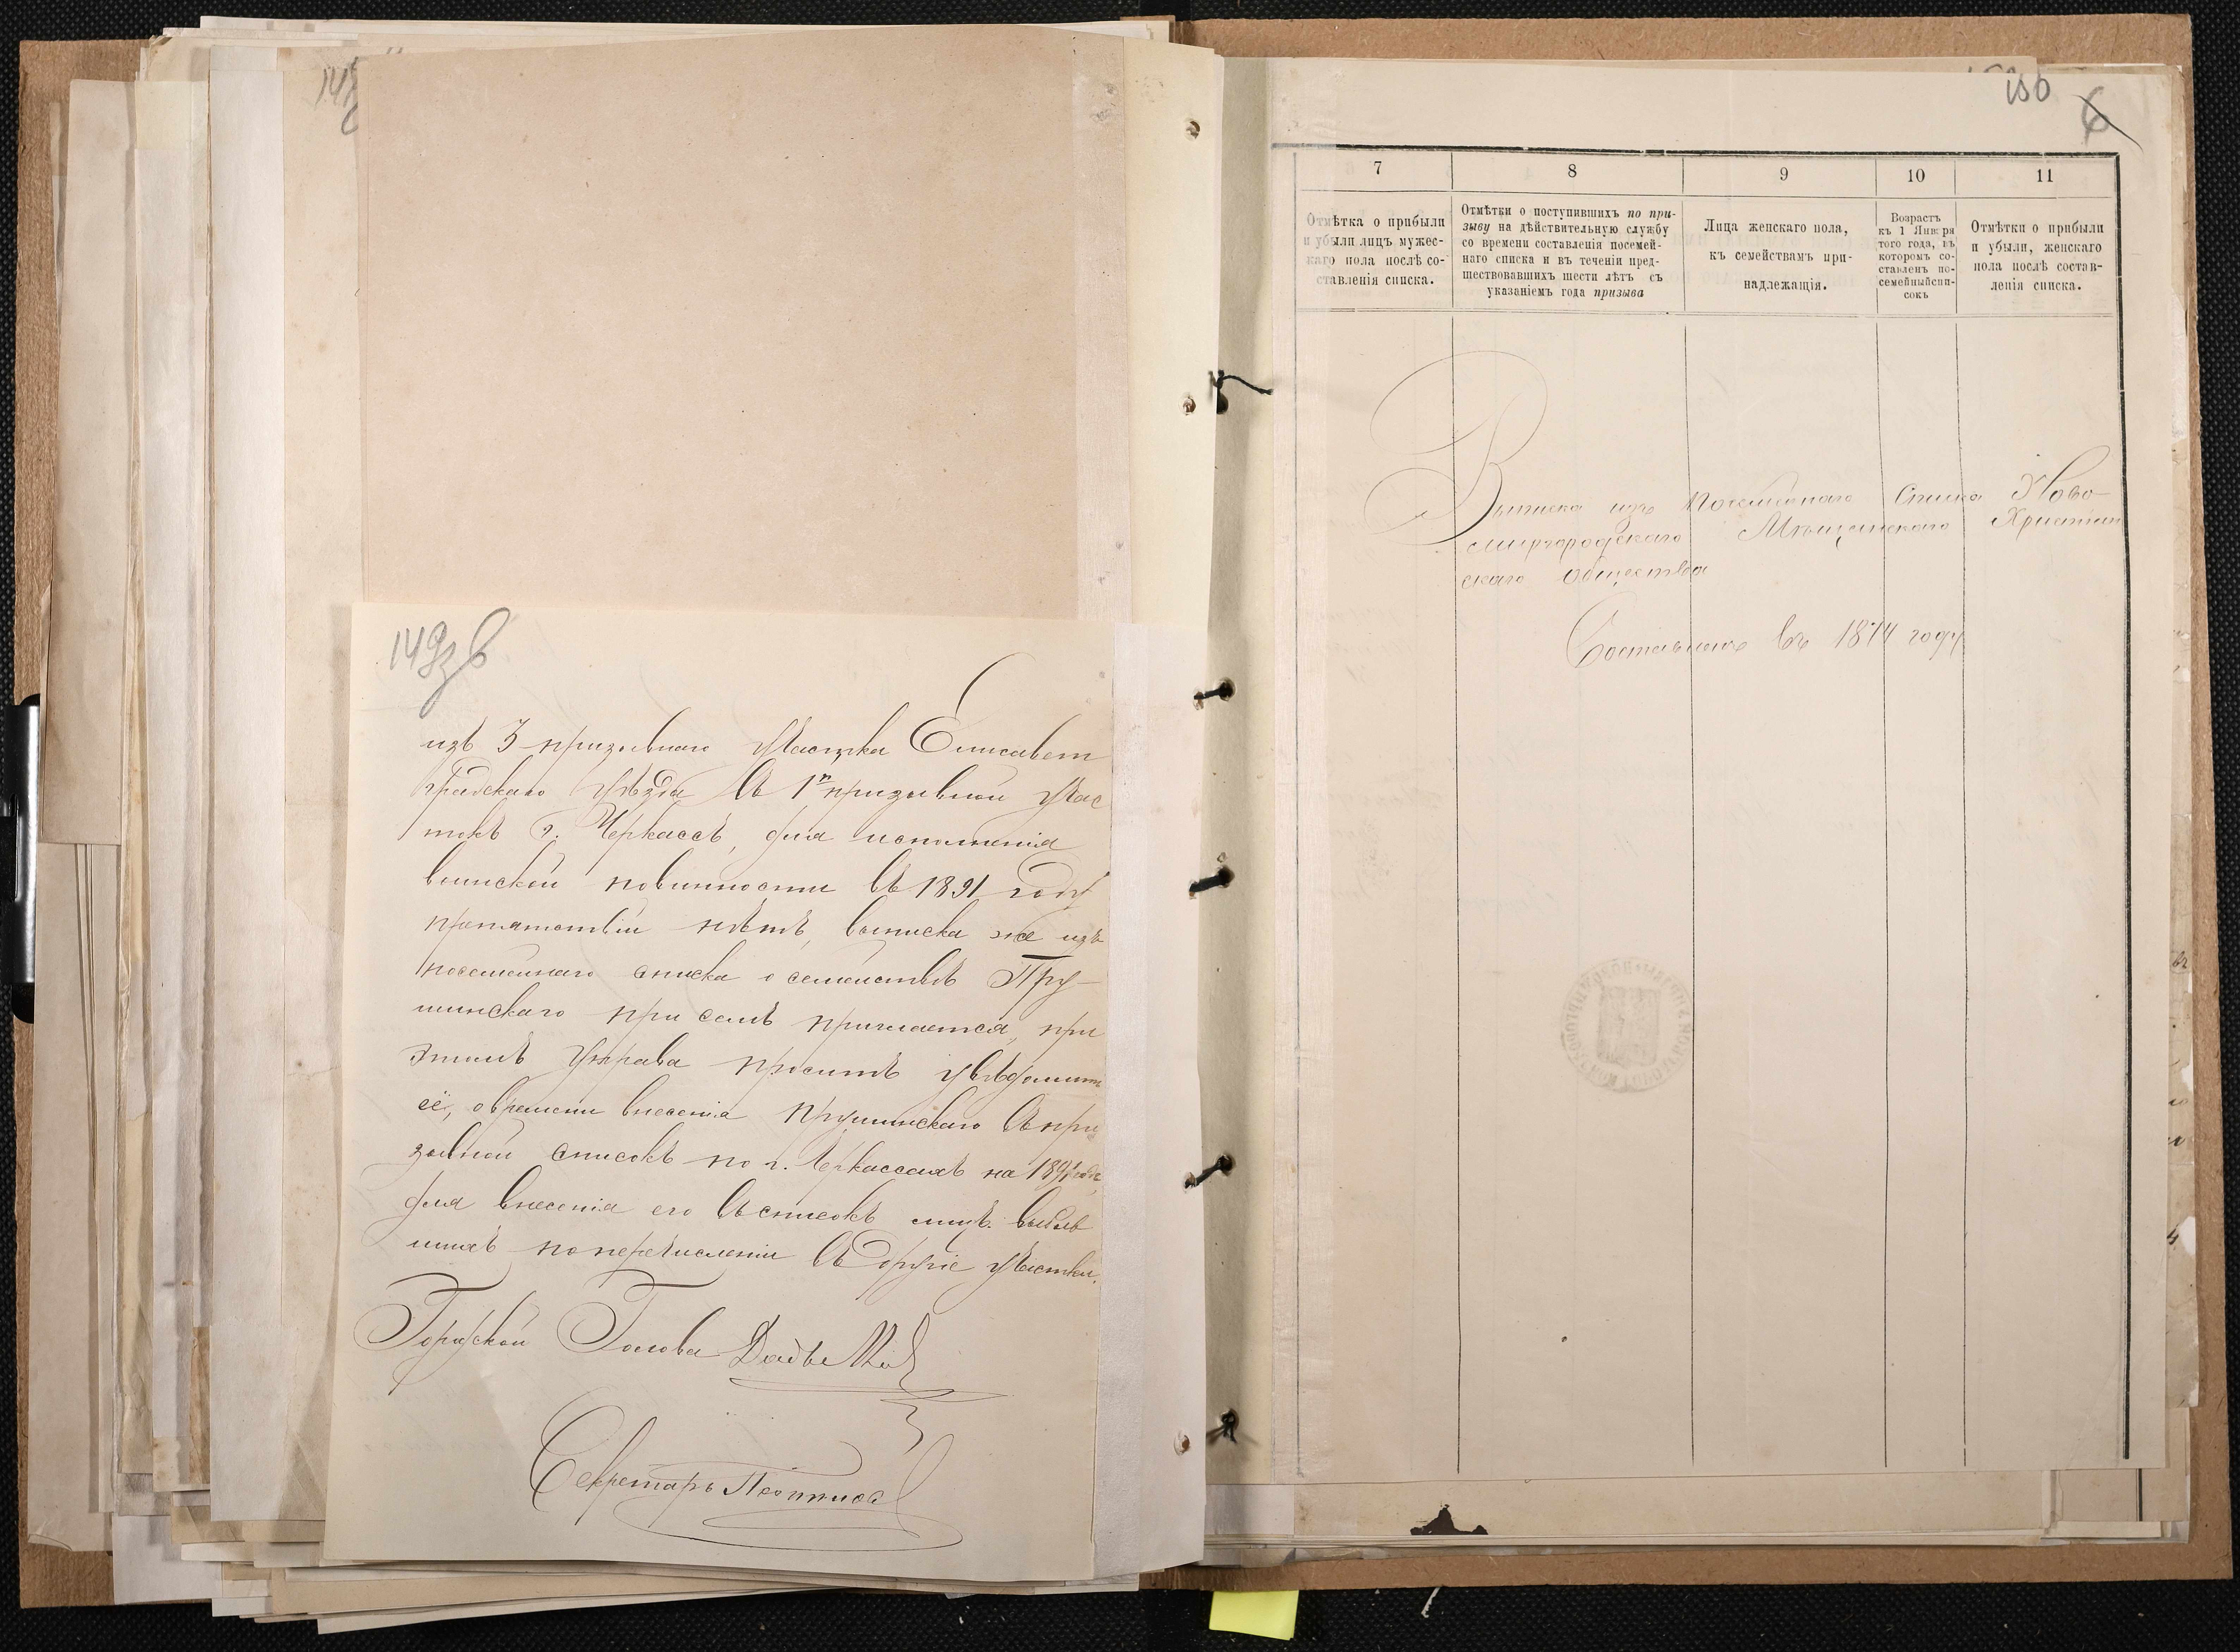 149зв
изъ 3 призывнаго участка Елисавет
градскаго уѣзда въ 1й призывной учас
токъ г. Черкассъ, для исполненія
воинской повинности въ 1891 году
препятствій нѣтъ, выписка же изъ
посемейнаго списка о семействѣ Пру-
шинскаго при семъ прилагается, при
этомъ Управа проситъ увѣдомить
её, о времени внесенія Прушинскаго въ при
зывной списокъ по г. Черкассамъ на 1891 годъ,
для внесенія его въ списокъ лицъ выбыв
шихъ по перечисленіи въ другіе участки.
Городской Голова
Секретарь
150
6
7 8 9 10 11
Отмѣтка о прибыли
и убыли лицъ мужес-
каго пола послѣ со-
ставленія списка.
Отмѣтки о поступившихъ по при-
зыву на дѣйствительную службу
со времени составленія посемей-
наго списка и въ теченіи пред-
шествовавшихъ шести лѣтъ съ
указаніемъ года призыва
Лица женскаго пола,
къ семействамъ при-
надлежащія.
Возрастъ
къ 1 Января
того года, въ
которомъ со-
ставленъ по-
семейный спи-
сокъ
Отмѣтки о прибыли
и убыли, женскаго
пола послѣ состав-
ленія списка.
Выписка изъ посемейнаго списка Ново
миргородскаго Мѣщанскаго Христиан
скаго общества
Составленъ въ 1874 году